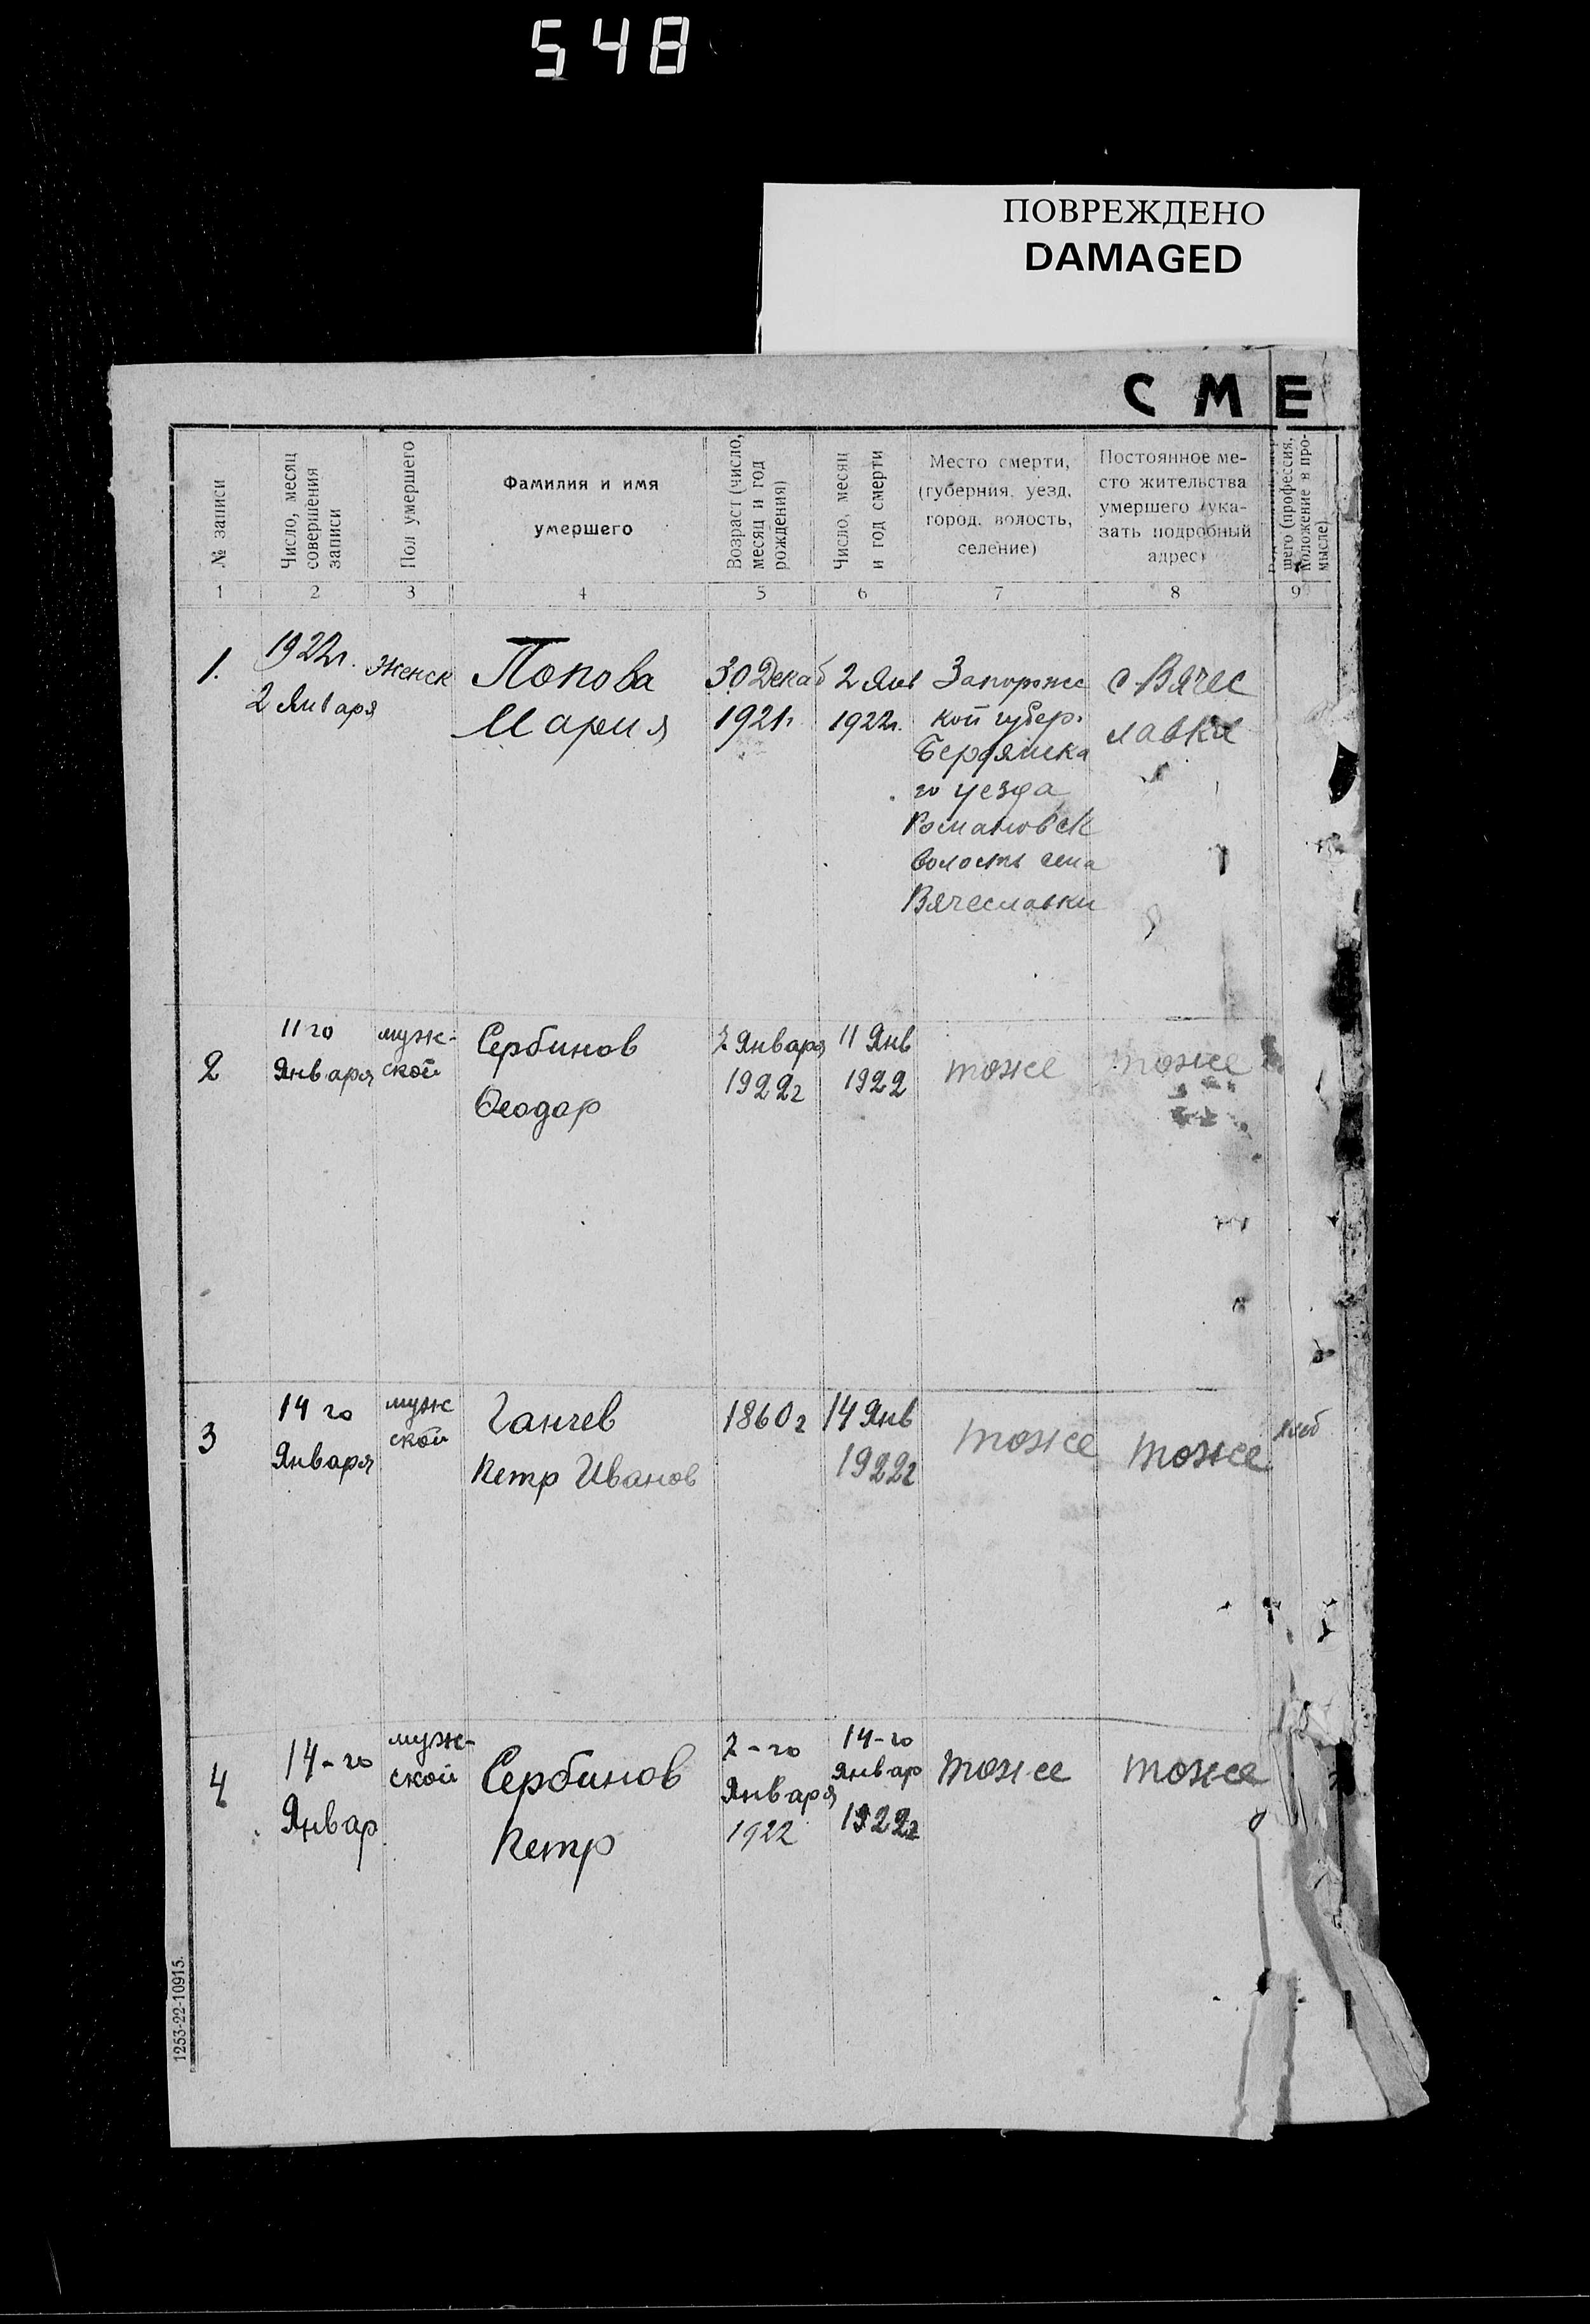 548
ПОВРЕЖДЕНО
DAMAGED
СМЕ
№ записи
Число, месяц
совершения
записи
Пол умершего
Фамилия и имя
умершего
Возраст (число,
месяц и год
рождения)
Число, месяц
и год смерти
Место смерти,
(губерния, уезд,
город, волость,
селение)
Постоянное ме-
сто жительства
умершего (ука-
зать подробный
адрес)
шего (профессия,
положение в про-
мысле)
1 2 3 4 5 6 7 8 9
1.
1922г.
2 Января
Женск
Попова
Мария
30 Декаб
1921г
2 Янв
1922г.
Запорожс
кой губер.
Бердянска
го уезда
Романовск
волость села
Вячеславки
с. Вячес
лавки
2
11 го
Января
муж-
ской
Сербинов
Феодор
7 Января
1922г
11 Янв
1922
тоже
тоже
3
14 го
Января
муж
ской
Ганчев
Петр Иванов
1860г
14 Янв
1922г
тоже
тоже
хлеб
4
14-го
Январ
муж-
ской
Сербинов
Петр
7-го
Января
1922
14-го
Январ
1922г
тоже
тоже
1253-22-10915.